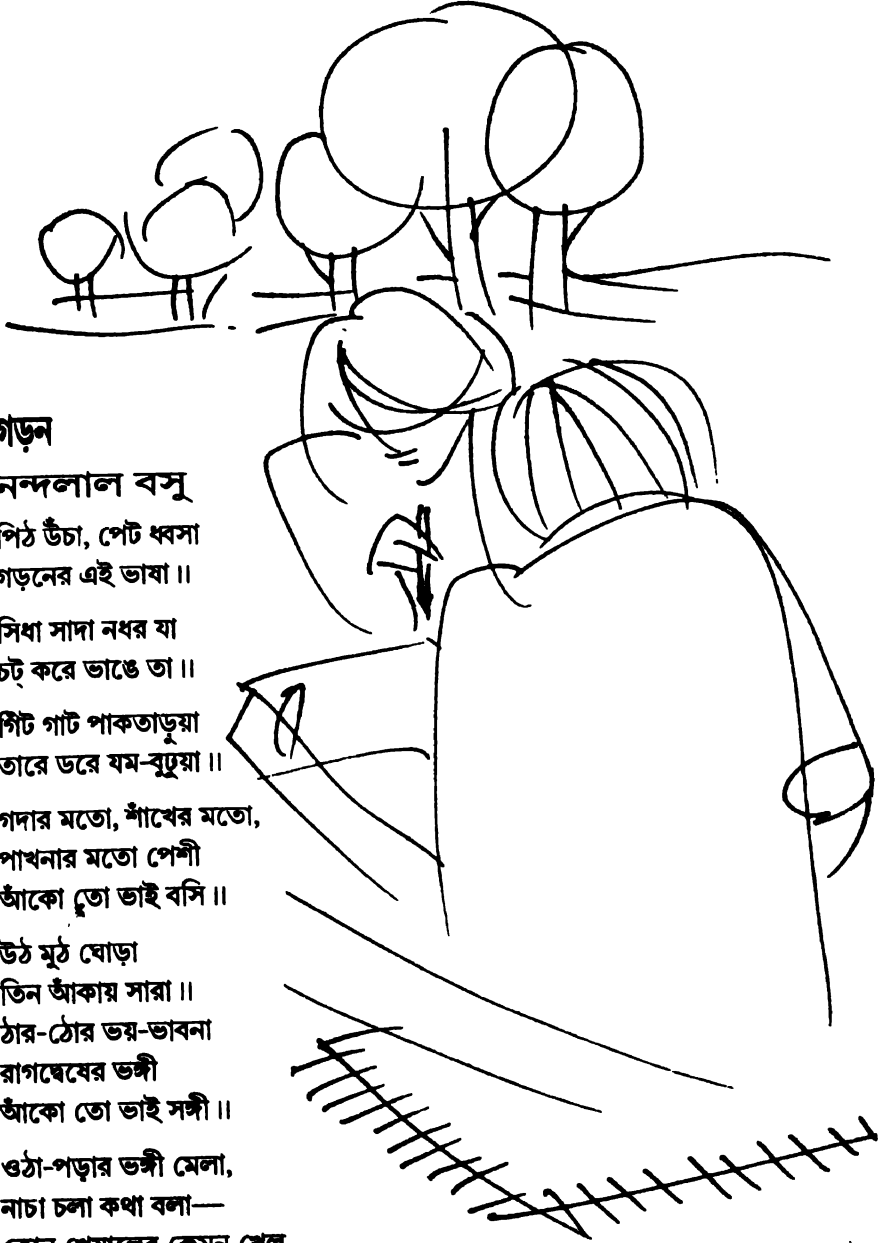 গড়ন
নন্দলাল বসু
পিঠ উঁচা, পেট ধ্বসা
গড়নের এই ভাষা॥
সিধা সাদা নধর যা
চট্ করে ভাঙে তা॥
গিঁট গাট পাকতাড়ুয়া
তারে ডরে যম-বুঢুয়া॥
গদার মতো, শাঁখের মতো,
পাখনার মতো পেশী
আঁকো তো ভাই বসি॥
উঠ মুঠ ঘোড়া
তিন আঁকায় সারা॥
ঠার-ঠোর ভয়-ভাবনা
রাগদ্বেষের ভঙ্গী
আঁকো তো ভাই সঙ্গী॥
ওঠা-পড়ার ভঙ্গী মেলা,
নাচা চলা কথা বলা—